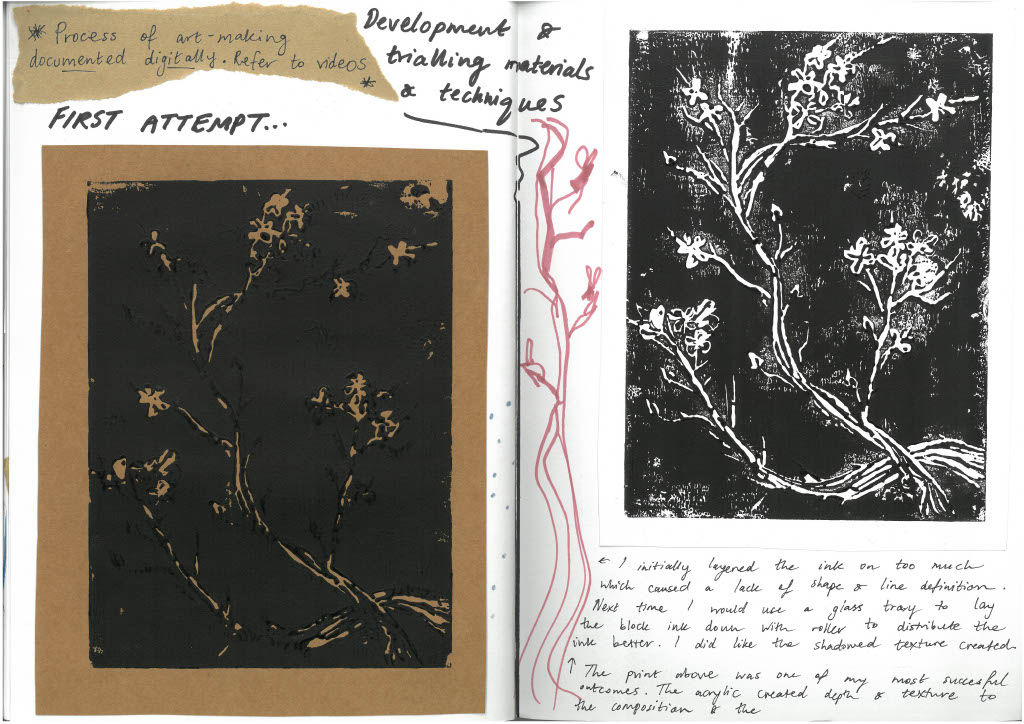 * Process of art-making
documented digitally. Refer to videos
*
FIRST ATTEMPT...
Development &
trialling materials
& techniques
← I initially layered the ink on too much
which caused a lack of shape & line definition.
Next time I would use a glass tray to lay
the block ink down with roller to distribute the
ink better. I did like the shadowed texture created.
↑ The print above was one of my most succesful
outcomes. The acrylic created depth & texture to
the composition & the